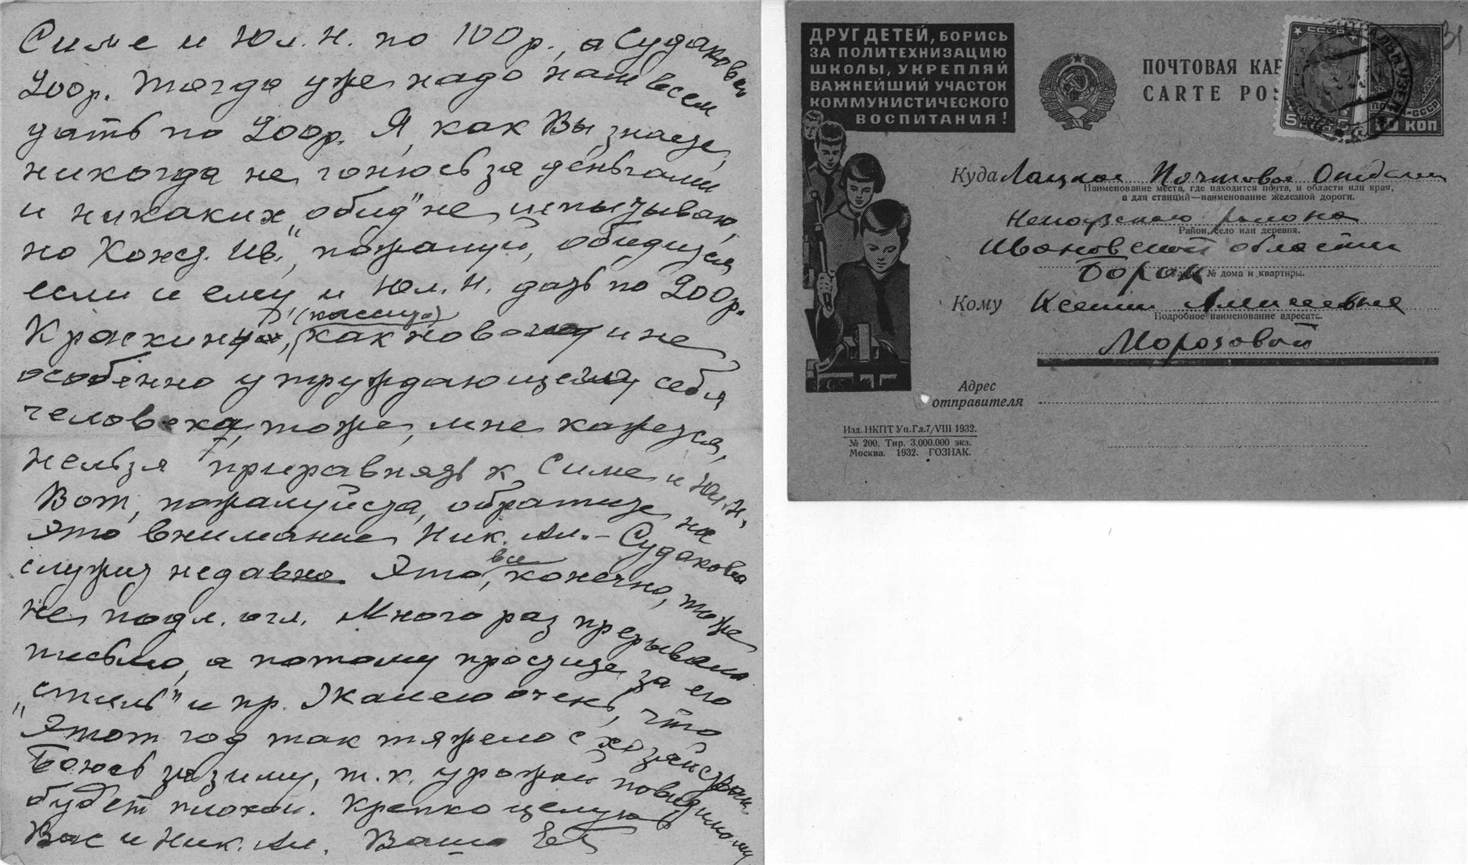 Симе и Юл. Н. по 100 р., а Судаковой
200р. Тогда уже надо нам всем
дать по 200р. Я, как Вы знаете,
никогда не гонюсь за деньгами
и никаких „обид" не испытываю,
но Конд. Ив., пожалуй, обидится
если и ему и Юл. Н. дать по 200р.
(кассиру)
как нового и не
особенно утруждающего себя
человека, тоже, мне кажется,
нельзя приравнять к Симе и Юл. Н.
Вот, пожалуйста, обратите на
это внимание Ник. Ал. – Судакова
служит недавно. Это все, конечно, тоже
не подл. огл. Много раз прерывала
письмо, а потому простите за его
„стиль" и пр. Жалею очень, что
этот год так тяжело с хозяйством.
Боюсь за зиму, т.к. урожай повидимому
будет плохой. Крепко целую
Вас и Ник. Ал. Ваша
ДРУГ ДЕТЕЙ, БОРИСЬ
ЗА ПОЛИТЕХНИЗАЦИЮ
ШКОЛЫ, УКРЕПЛЯЙ
ВАЖНЕЙШИЙ УЧАСТОК
КОММУНИСТИЧЕСКОГО
ВОСПИТАНИЯ!
ПОЧТОВАЯ КАР
CARTE POS
5 КОП
Куда Лацкое Почтовое Отделен
Наименование места, где находится почта, и области или края,
а для станций—наименование железной дороги.
Некоузского района
Район, село или деревня.
Ивановской области
Борок
№ дома и квартиры.
Кому Ксении Алексеевне
Подробное наименование адресата.
Морозовой
Адрес
отправителя
Изд. НКПТ Уп. Гл. 7/VIII 1932.
№ 200. Тир. 3.000.000 экз.
Москва. 1932. ГОЗНАК.